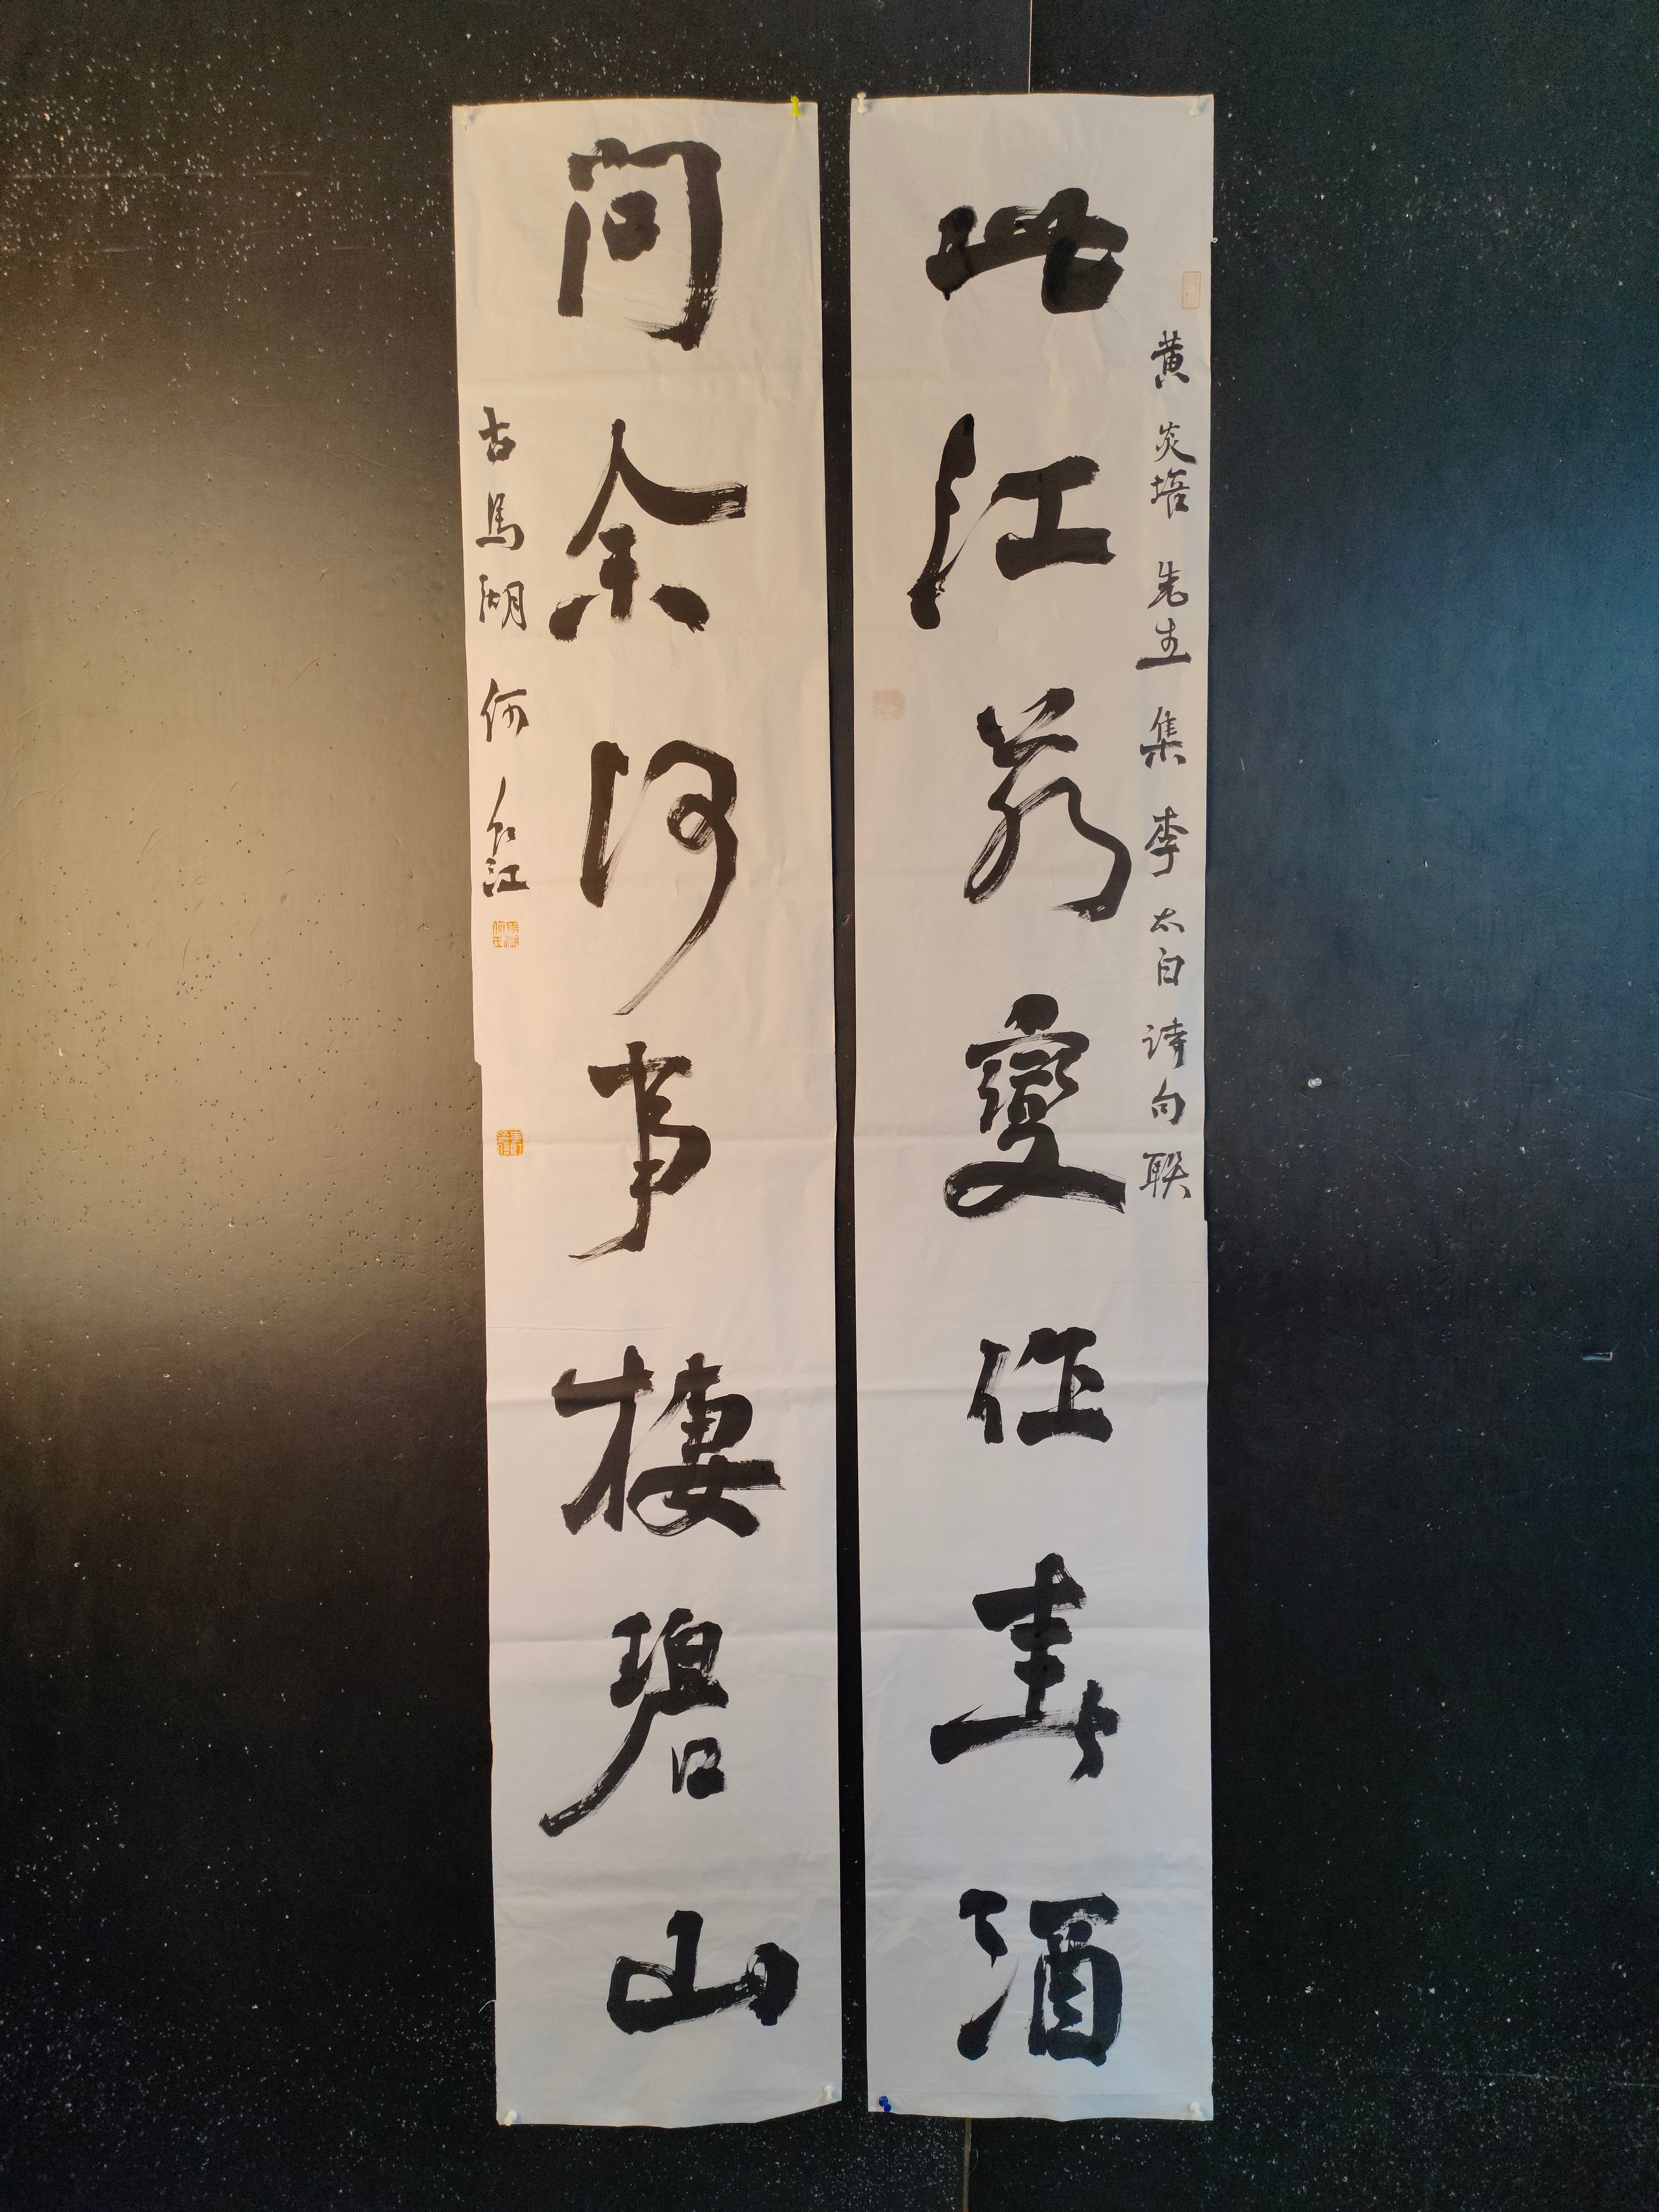 黄炎培先生集李太白诗句联
此江若變作春酒
问余何事棲碧山
古馬湖何
江